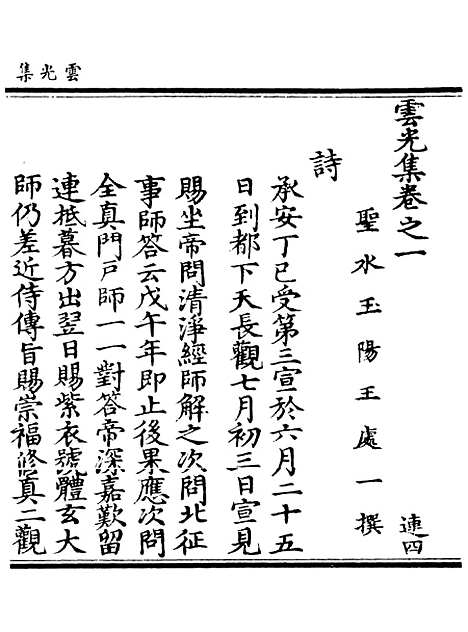 雲光集
雲光集卷之一
連四
聖水玉陽王處一撰
詩
承安丁巳受第三宣於六月二十五
日到都下天長觀七月初三日宣見
賜坐帝問清淨經師解之次問北征
事師答云戊午年即止後果應次問
全真門戶師一一對答帝深嘉歎留
連抵暮方出翌日賜紫衣號體玄大
師仍差近侍傳旨賜崇福修真二觀